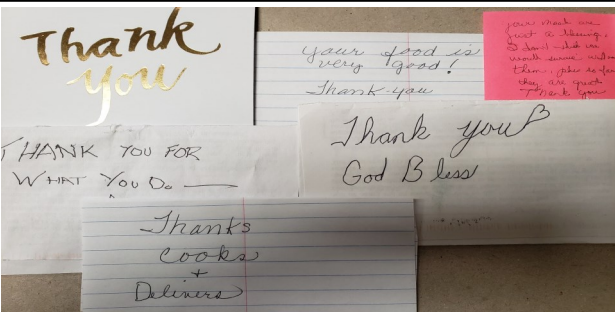 Thank
you
your food is
very good!
Thank-you
your meals are
just a blessing.
I don't think we
would survive without
them,
they are good.
Thank you
THANK YOU FOR
WHAT YOU DO
Thank you
God Bless
Thanks
Cooks
+
Delivers